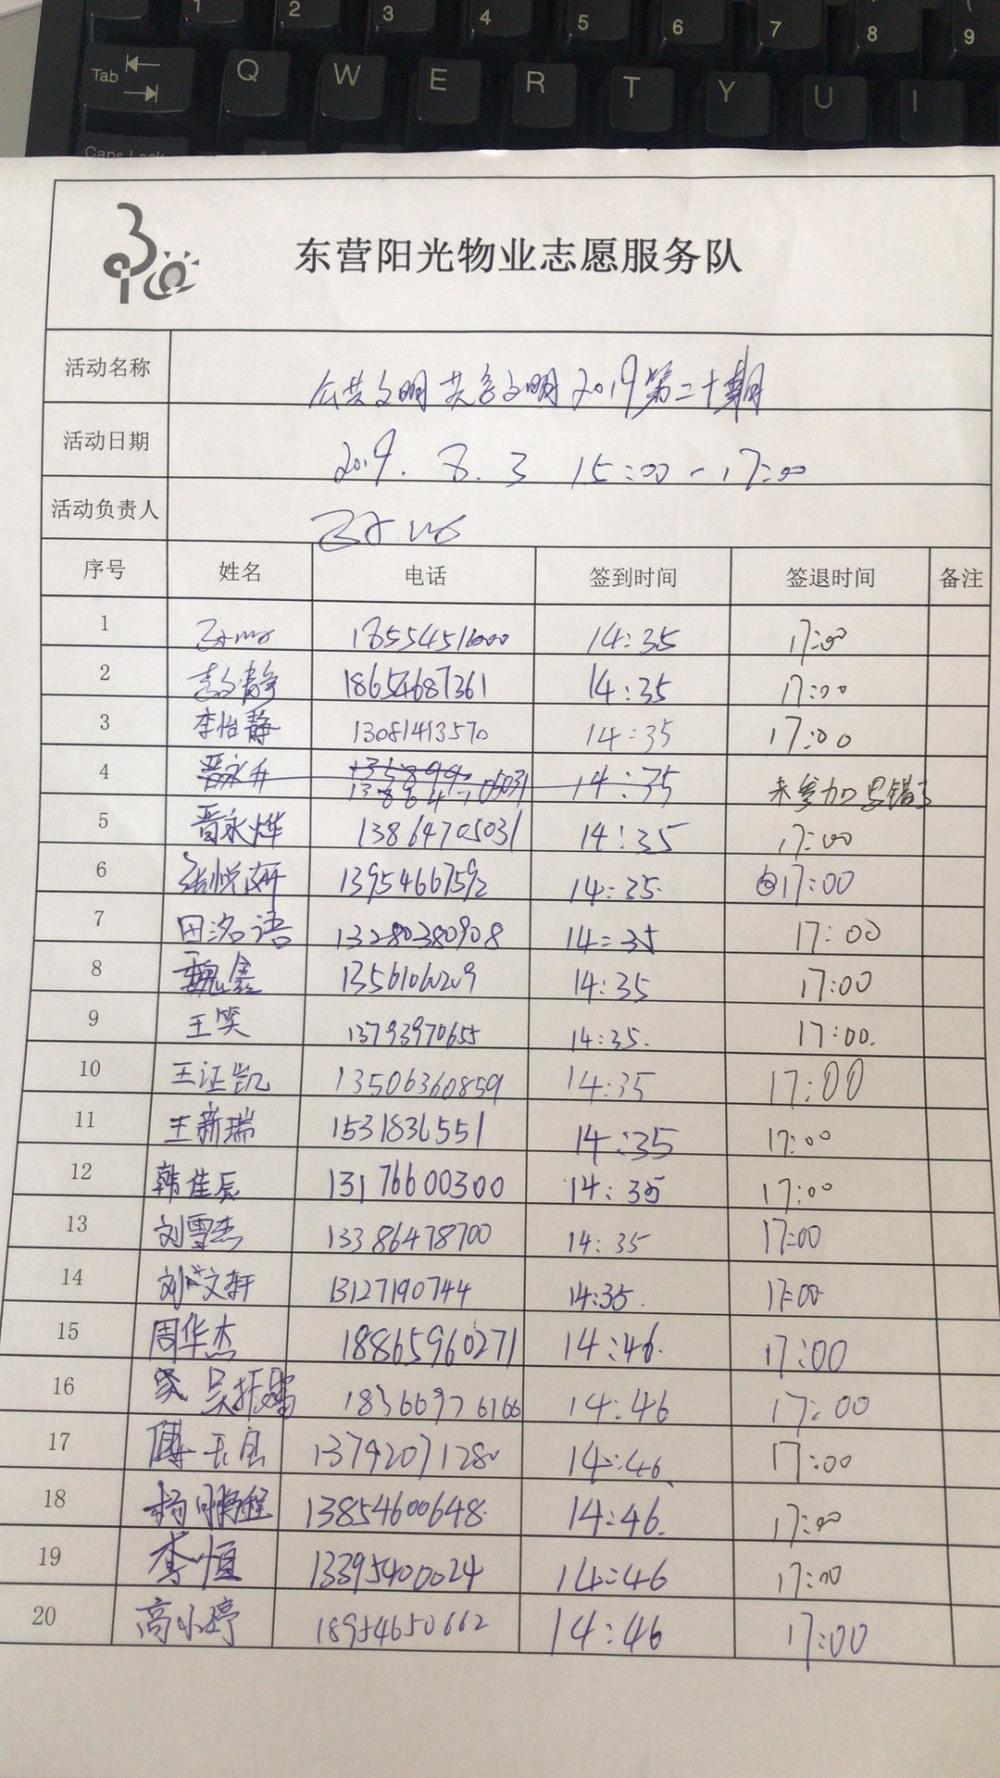 1 2 3 4 5 6 7 8 9
Tab Q W E R T Y U I
Caps Lock
东营阳光物业志愿服务队
活动名称 公共文明 共享文明 2019第二十期
活动日期 2019. 8. 3 15:00-17:00
活动负责人
序号 姓名 电话 签到时间 签退时间 备注
1 14:35 17:00
2 赵文静 18654687361 14:35 17:00
3 李怡静 13081413570 14:35 17:00
4 晋永升 14:35 未参加 写错了
5 晋永烨 13864705031 14:35 17:00
6 张悦妍 13954667592 14:35 17:00
7 田洺语 13280380908 14=35 17:00
8 魏鑫 13561060209 14:35 17:00
9 王笑 13793970655 14:35. 17:00.
10 王证凯 13506360859 14:35 17:00
11 王新瑞 1531836551 14:35 17:00
12 韩佳辰 13176600300 14:35 17:00
13 刘雪杰 13386478700 14:35 17:00
14 刘文轩 13127190744 14:35. 17:00
15 周华杰 18865960271 14:46. 17:00
16 18366976166 14:46 17:00
17 13792071280 14:46 17:00
18 13854600648. 14:46. 17:00
19 李恒 13395400024 14:46 17:00
20 高小婷 18954650662 14:46 17:00